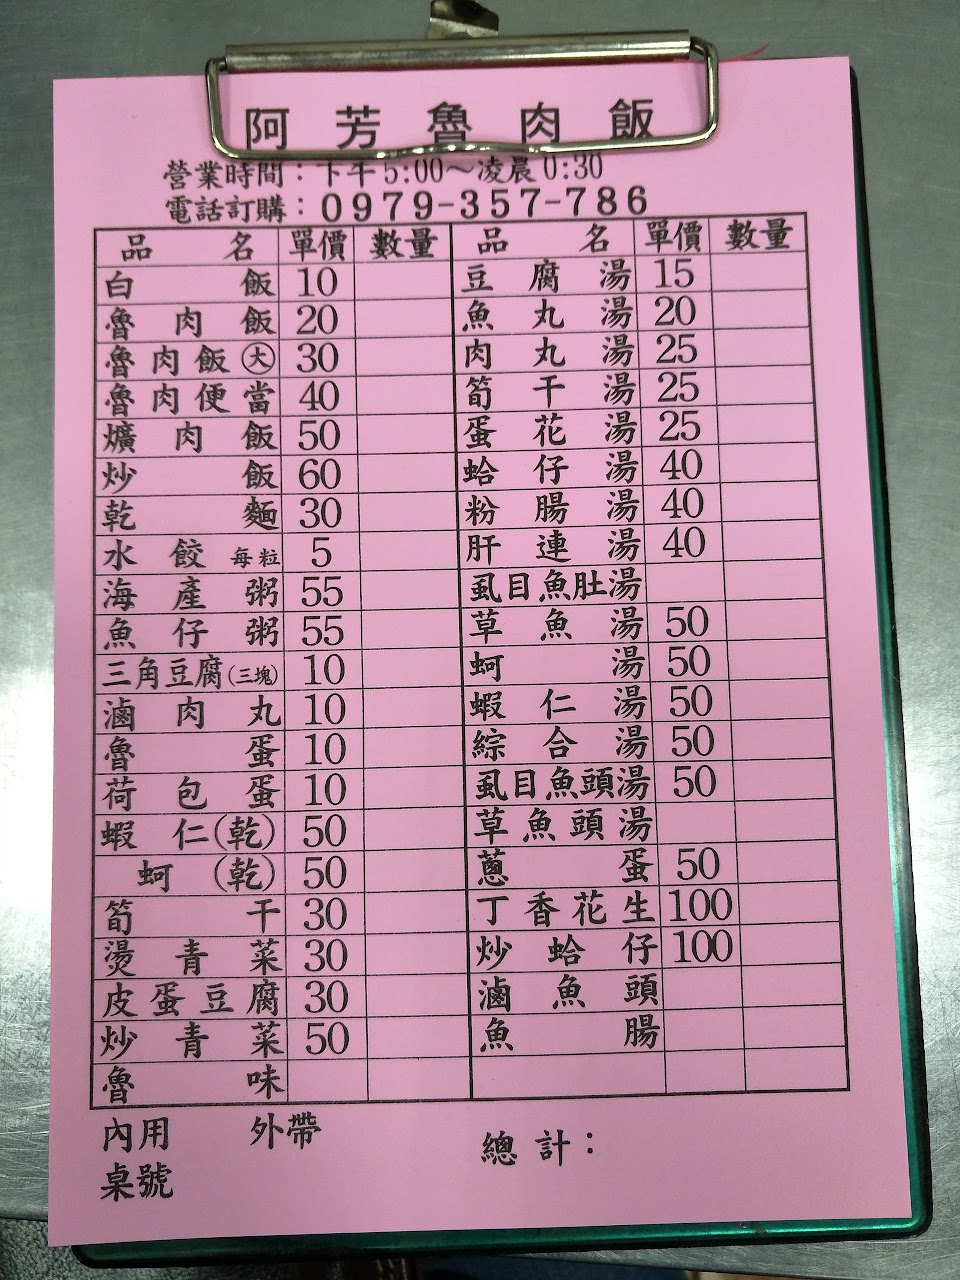 阿芳魯肉飯
營業時間：下午5:00～凌晨0:30
電話訂購：0979-357-786
品名 單價 數量 品名 單價 數量
白飯 10 豆腐湯 15
魯肉飯 20 魚丸湯 20
魯肉飯㊅ 30 肉丸湯 25
魯肉便當 40 筍干湯 25
爌肉飯 50 蛋花湯 25
炒飯 60 蛤仔湯 40
乾麵 30 粉腸湯 40
水餃每粒 5 肝連湯 40
海產粥 55 虱目魚肚湯
魚仔粥 55 草魚湯 50
三角豆腐(三塊) 10 蚵湯 50
滷肉丸 10 蝦仁湯 50
魯蛋 10 綜合湯 50
荷包蛋 10 虱目魚頭湯 50
蝦仁(乾) 50 草魚頭湯
蚵(乾) 50 蔥蛋 50
筍干 30 丁香花生 100
燙青菜 30 炒蛤仔 100
皮蛋豆腐 30 滷魚頭
炒青菜 50 魚腸
魯味
內用 外帶 總計：
桌號